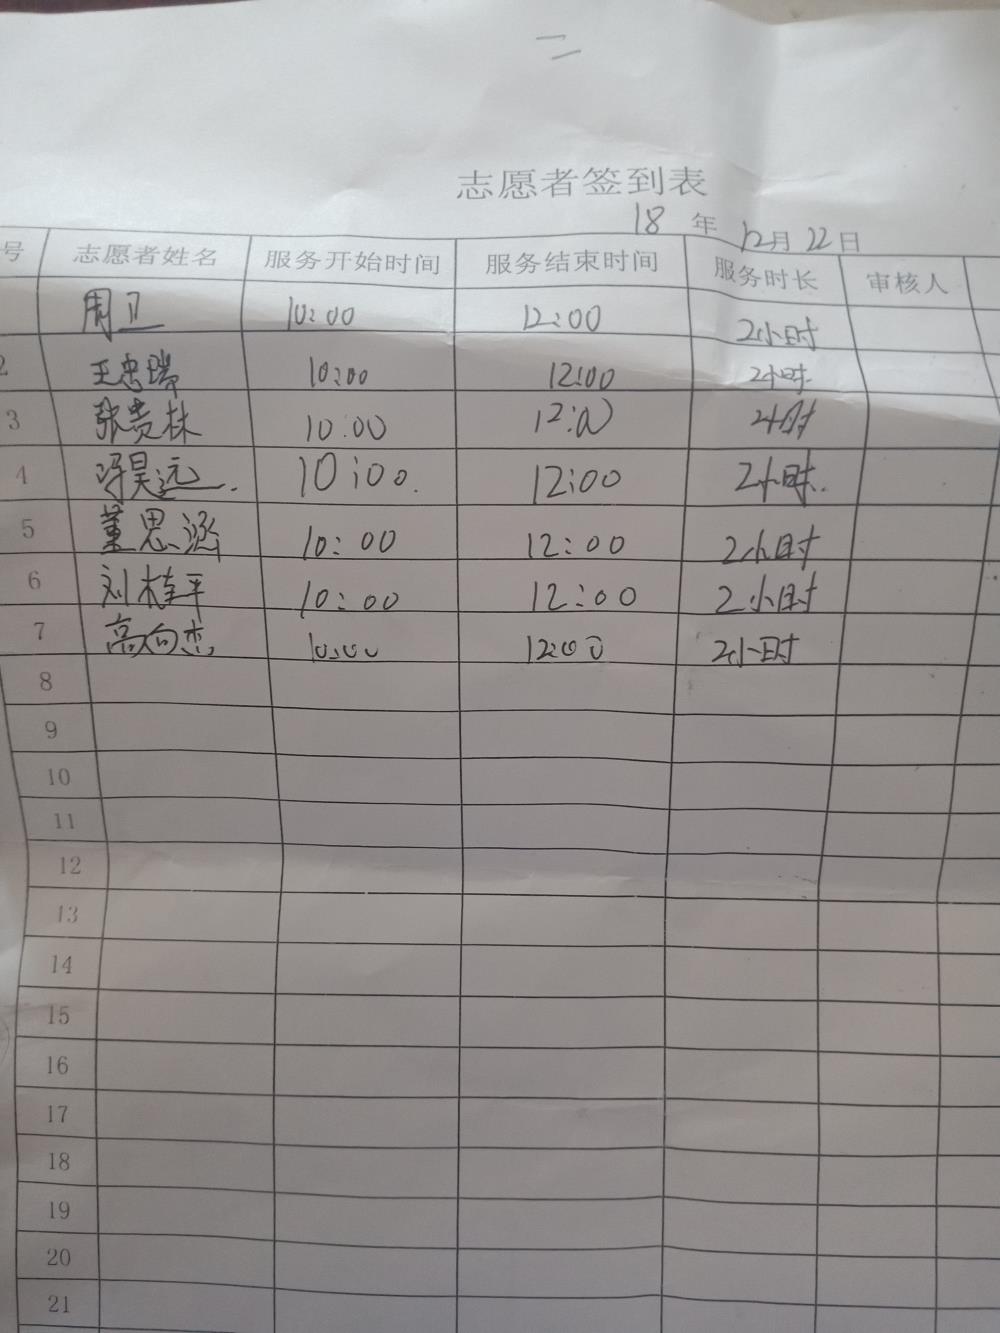 二
志愿者签到表
18年12月22日
号 志愿者姓名 服务开始时间 服务结束时间 服务时长 审核人
周卫 10:00 12:00 2小时
2 王忠瑞 10:00 12:00 2小时
3 张贵林 10:00 12:00 2小时
4 冯昊远. 10:00. 12:00 2小时.
5 董思涵 10:00 12:00 2小时
6 刘桂平 10:00 12:00 2小时
7 高向 10:00 12:00 2小时
8
9
10
11
12
13
14
15
16
17
18
19
20
21